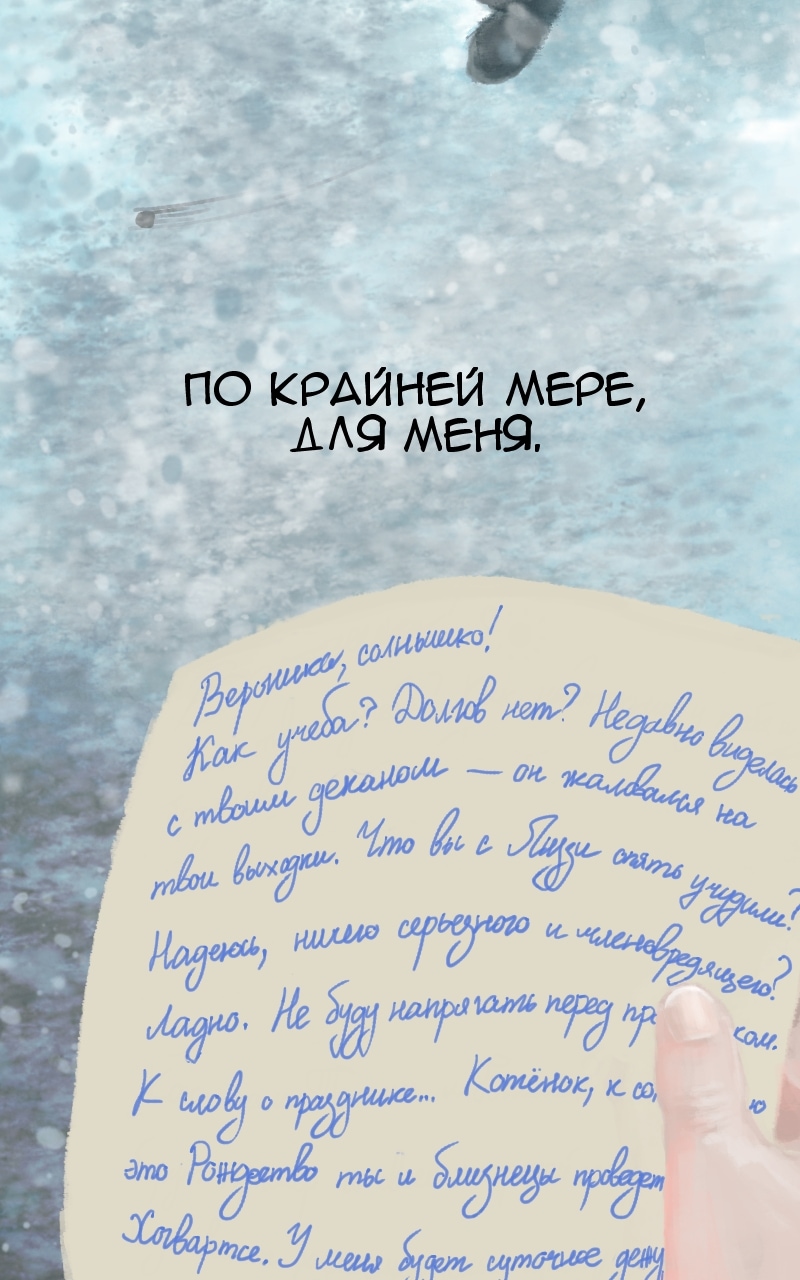 ПО КРАЙНЕЙ МЕРЕ,
ДЛЯ МЕНЯ.
солнышко!
Как учеба? Долгов нет? Недавно виделась
с твоим деканом — он жаловался на
твои выходки. Что вы с Лиззи опять учудили?
Надеюсь, ничего серьезного и членовредящего?
Ладно. Не буду напрягать перед пр ком.
К слову о празднике... Котёнок, к со ю
это Рождество ты и близнецы проведет
Хогвартсе. У меня будет суточное дежу